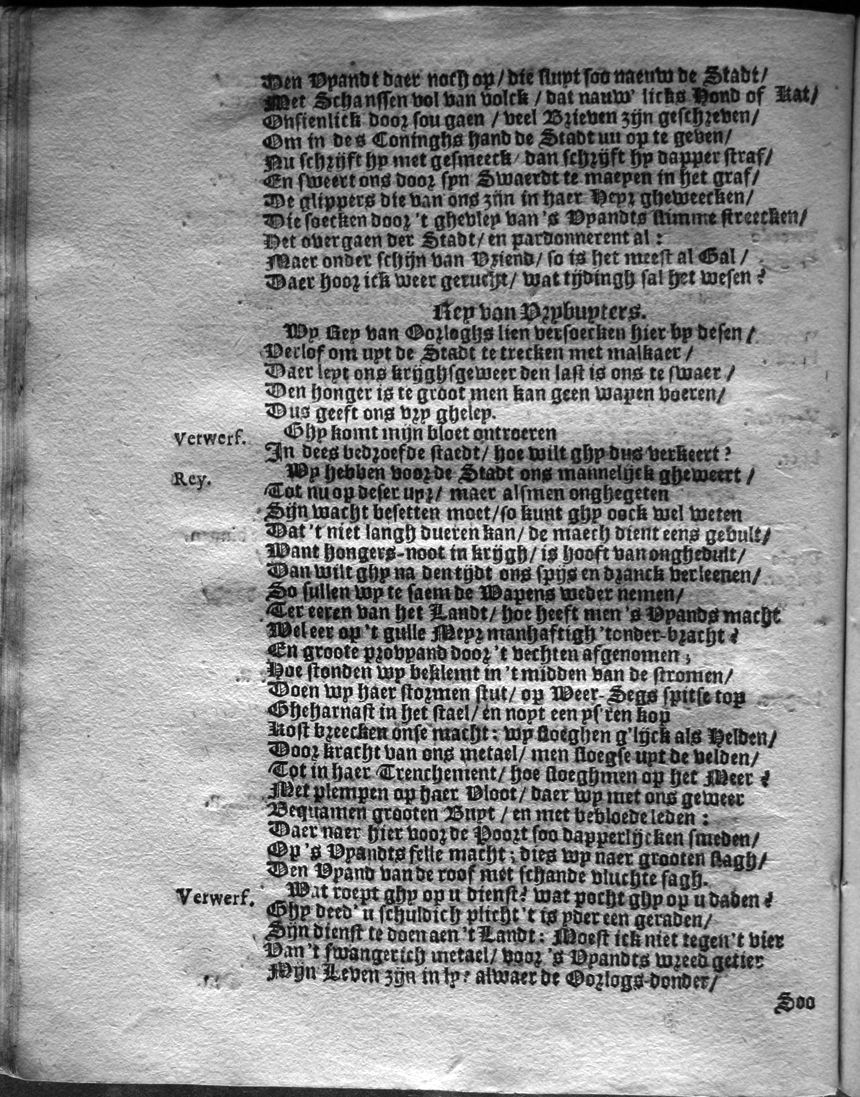 Den Vyandt daer noch op/ die sluyt soo naeuw de Stadt/
Met Schanssen vol van volck / dat nauw' licks Hond of Kat/
Onsienlick door sou gaen / veel Brieven zijn geschreven/
Om in des Coninghs hand de Stadt uu op te geven/
Nu schrijft hy met gesmeeck/ dan schrijft hy dapper straf/
En sweert ons door syn Swaerdt te maeyen in het graf/
De glippers die van ons zijn in haer Heyr gheweecken/
Die soecken door 't ghevley van 's Vyandts slimme streecken/
Het overgaen der Stadt/ en pardonnerent al :
Maer onder schijn van Vriend/ so is het meest al Gal /
Daer hoor ick weer gerucht/ wat tijdingh sal het wesen ?
Rey van Vrybuyters.
Wy Rey van Oorloghs lien versoecken hier by desen /
Verlof om uyt de Stadt te trecken met malkaer /
Daer leyt ons krijghsgeweer den last is ons te swaer /
Den honger is te groot men kan geen wapen voeren/
Dus geeft ons vry gheley.
Verwerf. Ghy komt mijn bloet ontroeren
In dees bedroefde staedt/ hoe wilt ghy dus verkeert ?
Rey. Wy hebben voor de Stadt ons mannelijck gheweert /
Tot nu op deser uyr/ maer alsmen onghegeten
Sijn wacht besetten moet/ so kunt ghy oock wel weten
Dat 't niet langh dueren kan/ de maech dient eens gevult/
Want hongers-noot in krijgh/ is hooft van onghedult/
Dan wilt ghy na den tijdt ons spijs en dranck verleenen/
So sullen wy te saem de Wapens weder nemen/
Ter eeren van het Landt/ hoe heeft men 's Vyands macht
Wel eer op 't gulle Meyr manhaftigh 'tonder-bracht ?
En groote provyand door 't vechten afgenomen ;
Hoe stonden wy beklemt in 't midden van de stromen/
Doen wy haer stormen stut/ op Weer-Segs spitse top
Gheharnast in het stael/ en noyt een ys'ren kop
Kost breecken onse macht : wy sloeghen g'lijck als Helden/
Door kracht van ons metael/ men sloegse uyt de velden/
Tot in haer Trenchement/ hoe sloeghmen op het Meer ?
Met plempen op haer Vloot/ daer wy met ons geweer
Bequamen grooten Buyt / en met bebloede leden :
Daer naer hier voor de Poort soo dapperlijcken smeden/
Op 's Vyandts felle macht ; dies wy naer grooten slagh/
Den Vyand van de roof met schande vluchte sagh.
Verwerf. Wat roept ghy op u dienst? wat pocht ghy op u daden ?
Ghy deed' u schuldich plicht 't is yder een geraden/
Sijn dienst te doen aen 't Landt : Moest ick niet tegen 't vier
Van 't swangerich metael/ voor 's Vyandts wreed getier
Mijn Leven zijn in ly? alwaer de Oorlogs-donder/
Soo